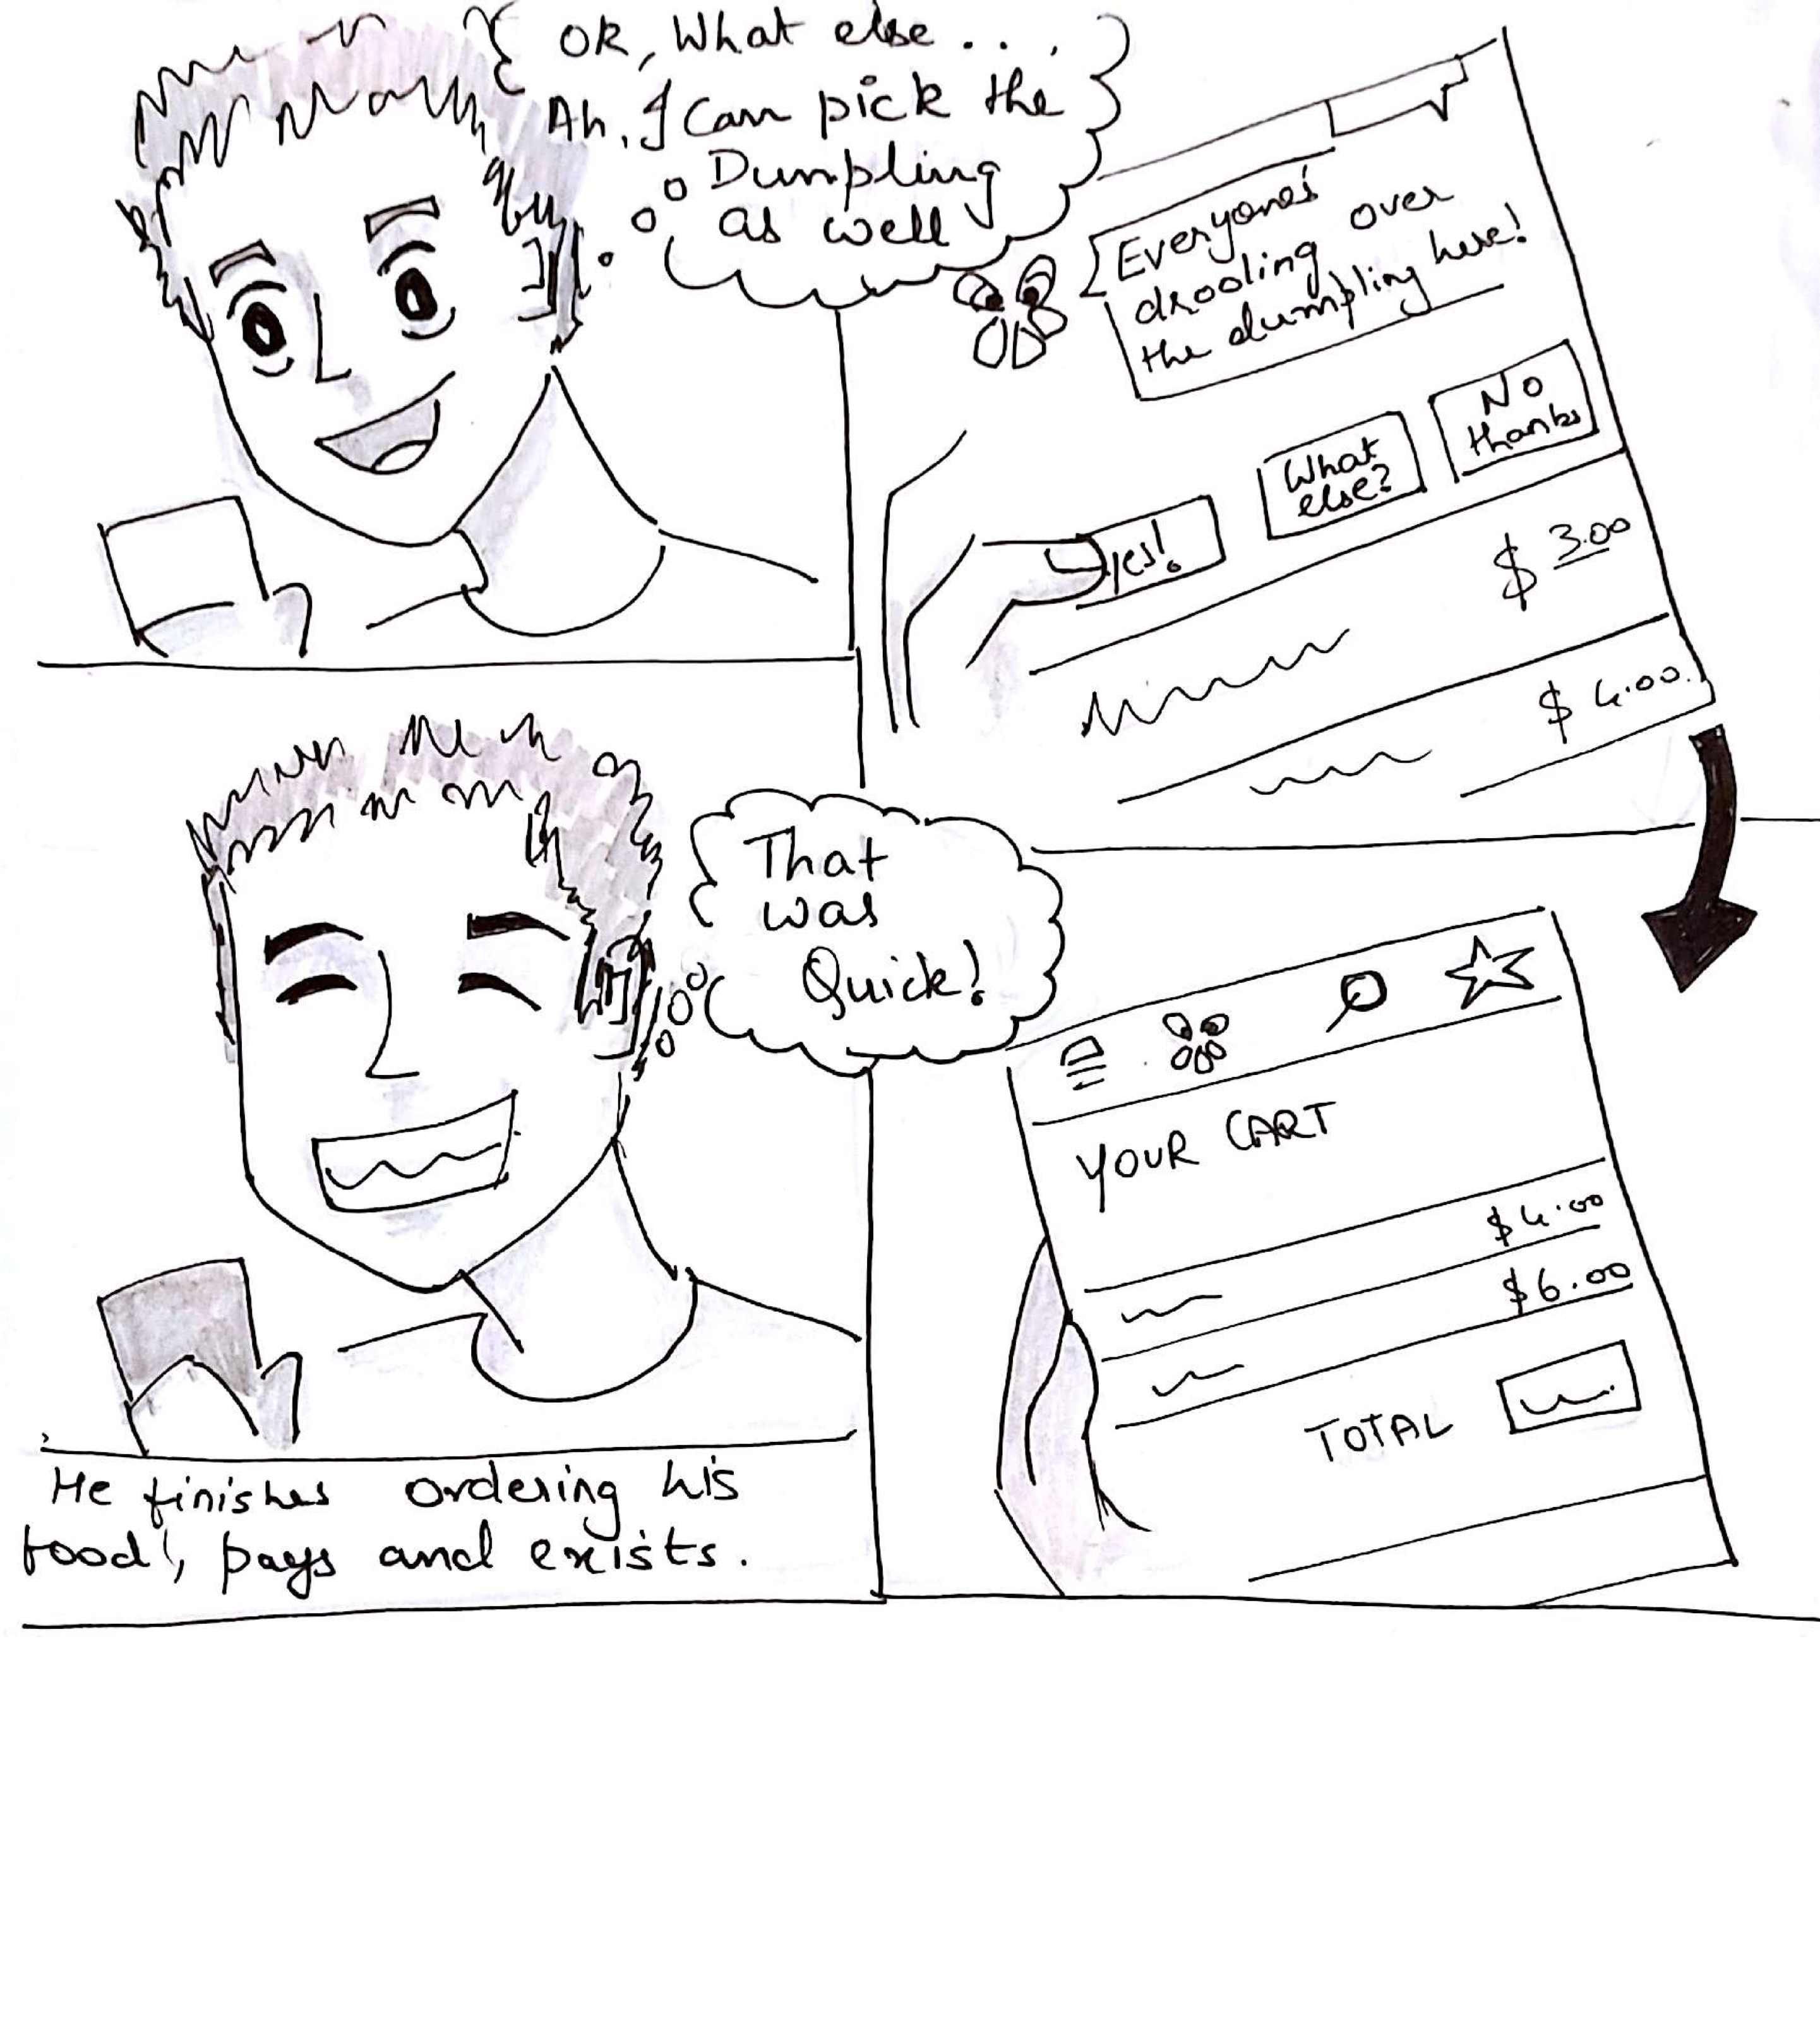 OK, What else . . .
Ah, I Can pick the
Dumpling
as well
Everyones'
drooling over
the dumpling here!
Yes!
What
else?
No
thanks
$ 3.00
$ 4.00
That
was
Quick!
YOUR CART
$4.00
$6.00
TOTAL
He finishes ordering his
food, pays and exists.